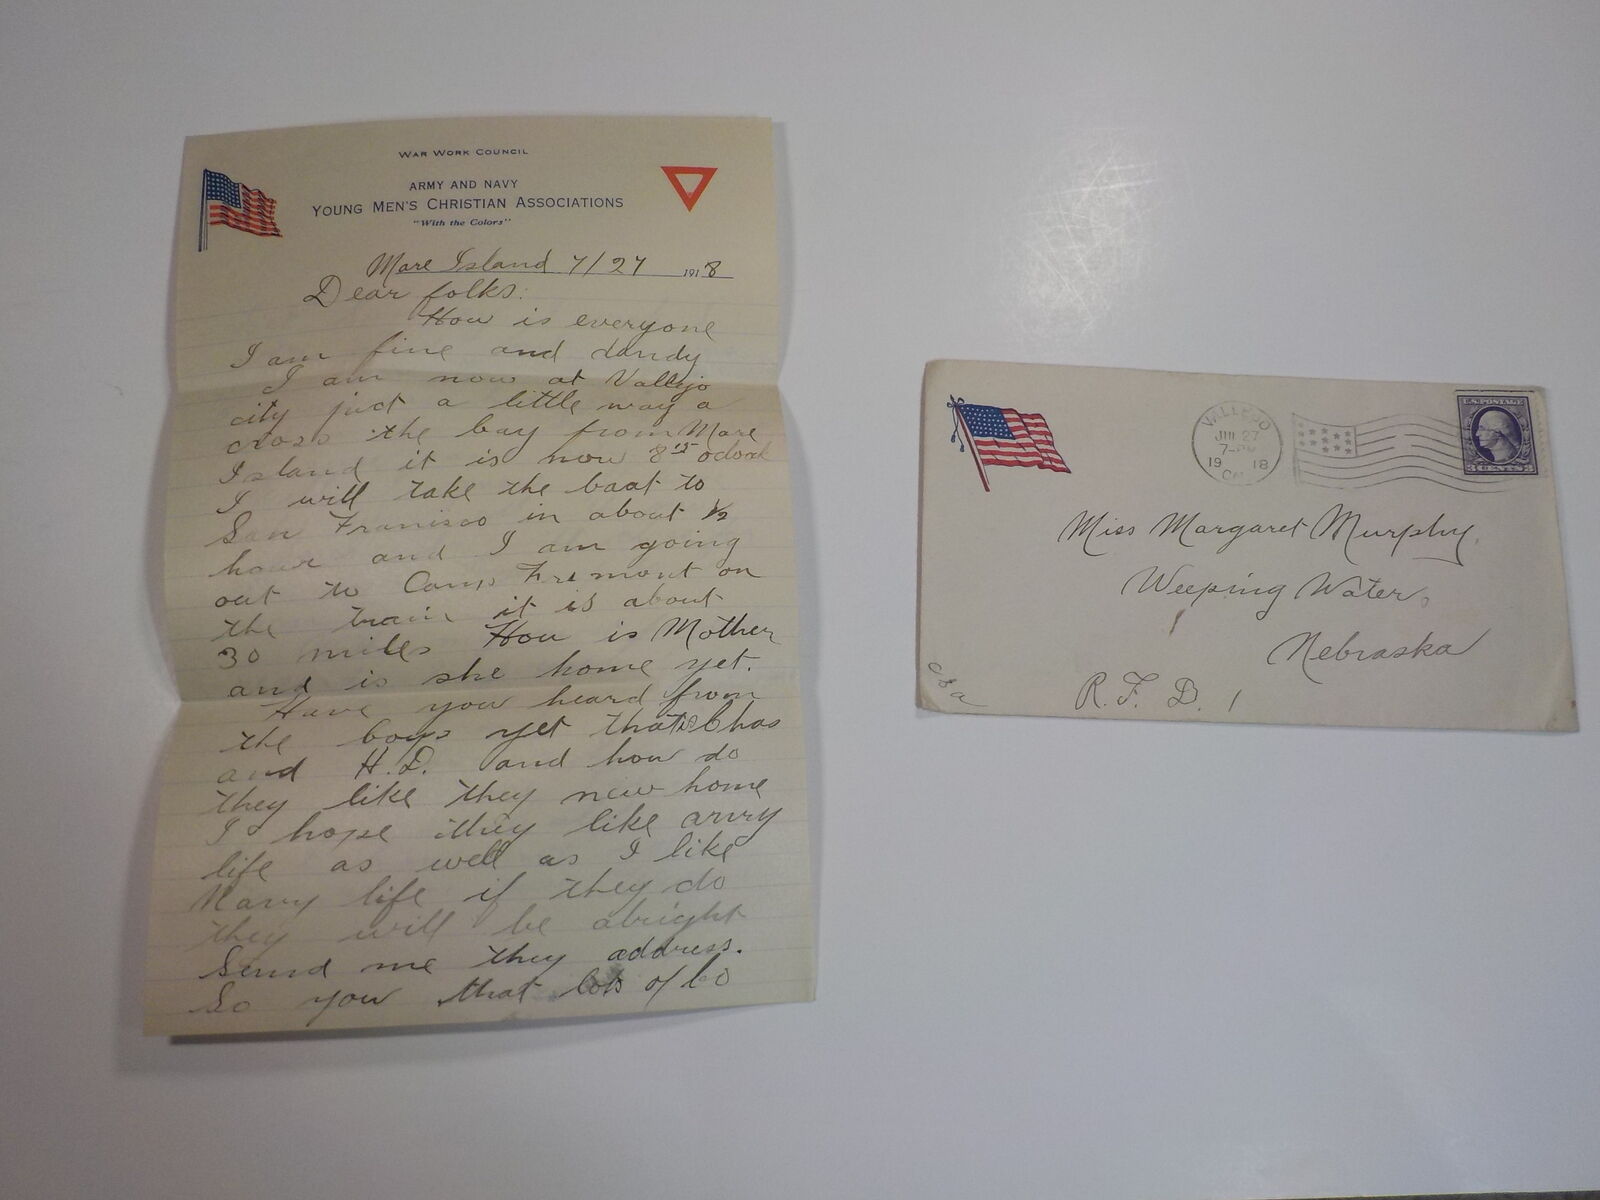 WAR WORK COUNCIL
ARMY AND NAVY
YOUNG MEN'S CHRISTIAN ASSOCIATIONS
"With the Colors"
Mare Island 7/27 1918
Dear folks:
How is everyone
I am fine and dandy
I am now at Vallejo
city just a little way a
cross the bay from Mare
Island it is now 8 15 oclock
I will take the boat to
San Fransisco in about 1/2
hour and I am going
out to Camp Fremont on
the train it is about
30 miles How is Mother
and is she home yet.
Have you heard from
the boys yet thats Chas
and H.D. and how do
they like they new home
I hope they like army
life as well as I like
Navy life if they do
they will be alright
Send me they address.
So you that lots of
VALLEJO
JUL 27
7-PM
19 18
CAL
U.S. POSTAGE
3 CENTS 3
Miss Margaret Murphy,
Weeping Water,
Nebraska
R. F. D. 1